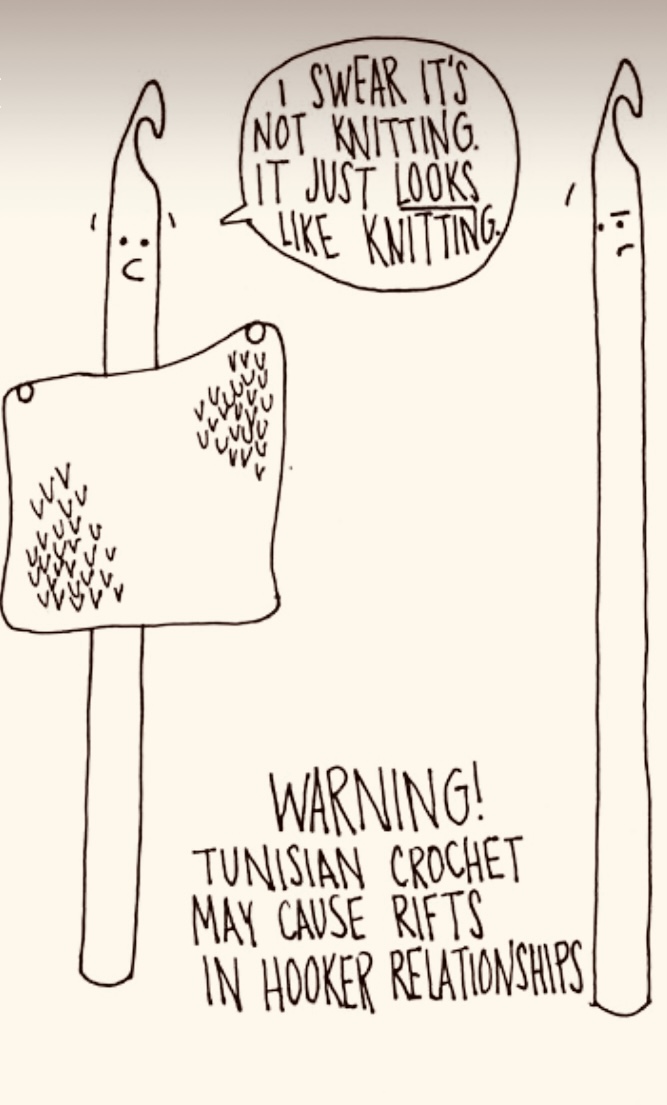 I SWEAR IT'S
NOT KNITTING.
IT JUST LOOKS
LIKE KNITTING.
WARNING!
TUNISIAN CROCHET
MAY CAUSE RIFTS
IN HOOKER RELATIONSHIPS